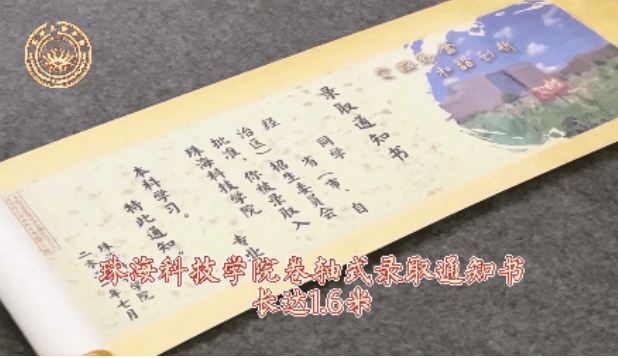 和谐创新
录取通知书
同学
经 省(市、自
治区)招生委员会
批准,你被录取入
珠海科技学院 专业
本科学习。
特此通知。
年七月
珠海科技学院卷轴式录取通知书
长达1.6米